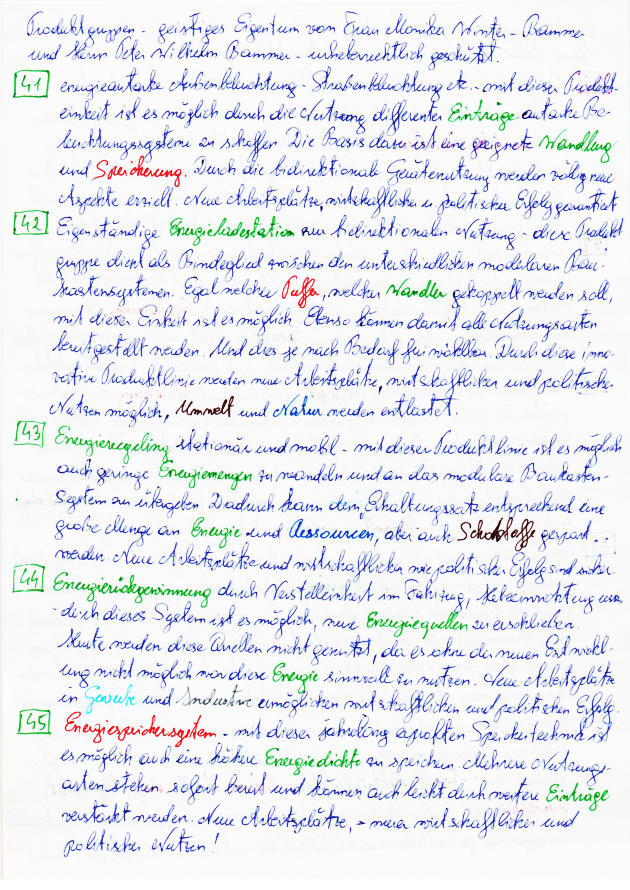 Produktgruppen - geistiges Eigentum von Frau Monika Winter - Bammer
und Herrn Peter Wilhelm Bammer - urheberrechtlich geschützt.
41 energieautarke Außenbeleuchtung - Straßenbeleuchtung etc. - mit dieser Produkt-
einheit ist es möglich durch die Nutzung differenter Einträge autarke Be-
leuchtungssysteme zu schaffen Die Basis dazu ist eine geeignete Wandlung
und Speicherung. Durch die bidirektionale Gerätenutzung werden völlig neue
Aspekte erzielt. Neue Arbeitsplätze, wirtschaftlicher u. politischer Erfolg garantiert
42 Eigenständige Energieladestation zur bidirektionalen Nutzung - diese Produkt
gruppe dient als Bindeglied zwischen den unterschiedlichen modularen Bau-
kastensystemen. Egal welcher Puffer, welcher Wandler gekoppelt werden soll,
mit dieser Einheit ist es möglich. Ebenso können damit alle Nutzungsarten
bereitgestellt werden. Und dies je nach Bedarf frei wählbar. Durch diese inno-
vative Produktlinie werden neue Arbeitsplätze, wirtschaftlicher und politischer
Nutzen möglich, Umwelt und Natur werden entlastet.
43 Energierecyceling stationär und mobil - mit dieser Produktlinie ist es möglich
auch geringe Energiemengen zu wandeln und an das modulare Baukasten-
System zu übergeben Dadurch kann dem Erhaltungssatz entsprechend eine
große Menge an Energie und Ressourcen, aber auch Schadstoffe gespart
werden. Neue Arbeitsplätze und wirtschaftlicher wie politischer Erfolg sind sicher.
44 Energierückgewinnung durch Verstelleinheit im Fahrzeug, Hebeeinrichtung usw.
- durch dieses System ist es möglich, neue Energiequellen zu erschließen.
Heute werden diese Quellen nicht genutzt, da es ohne der neuen Entwickl-
ung nicht möglich war diese Energie sinnvoll zu nutzen. Neue Arbeitsplätze
in Gewerbe und Industrie ermöglichen wirtschaftlichen und politischen Erfolg.
45 Energiespeichersystem - mit dieser jahrelang erprobten Speichertechnik ist
es möglich auch eine höhere Energiedichte zu speichern. Mehrere Nutzungs-
arten stehen sofort bereit und können auch leicht durch weitere Einträge
verstärkt werden. Neue Arbeitsplätze, - neuer wirtschaftlicher und
politischer Nutzen!